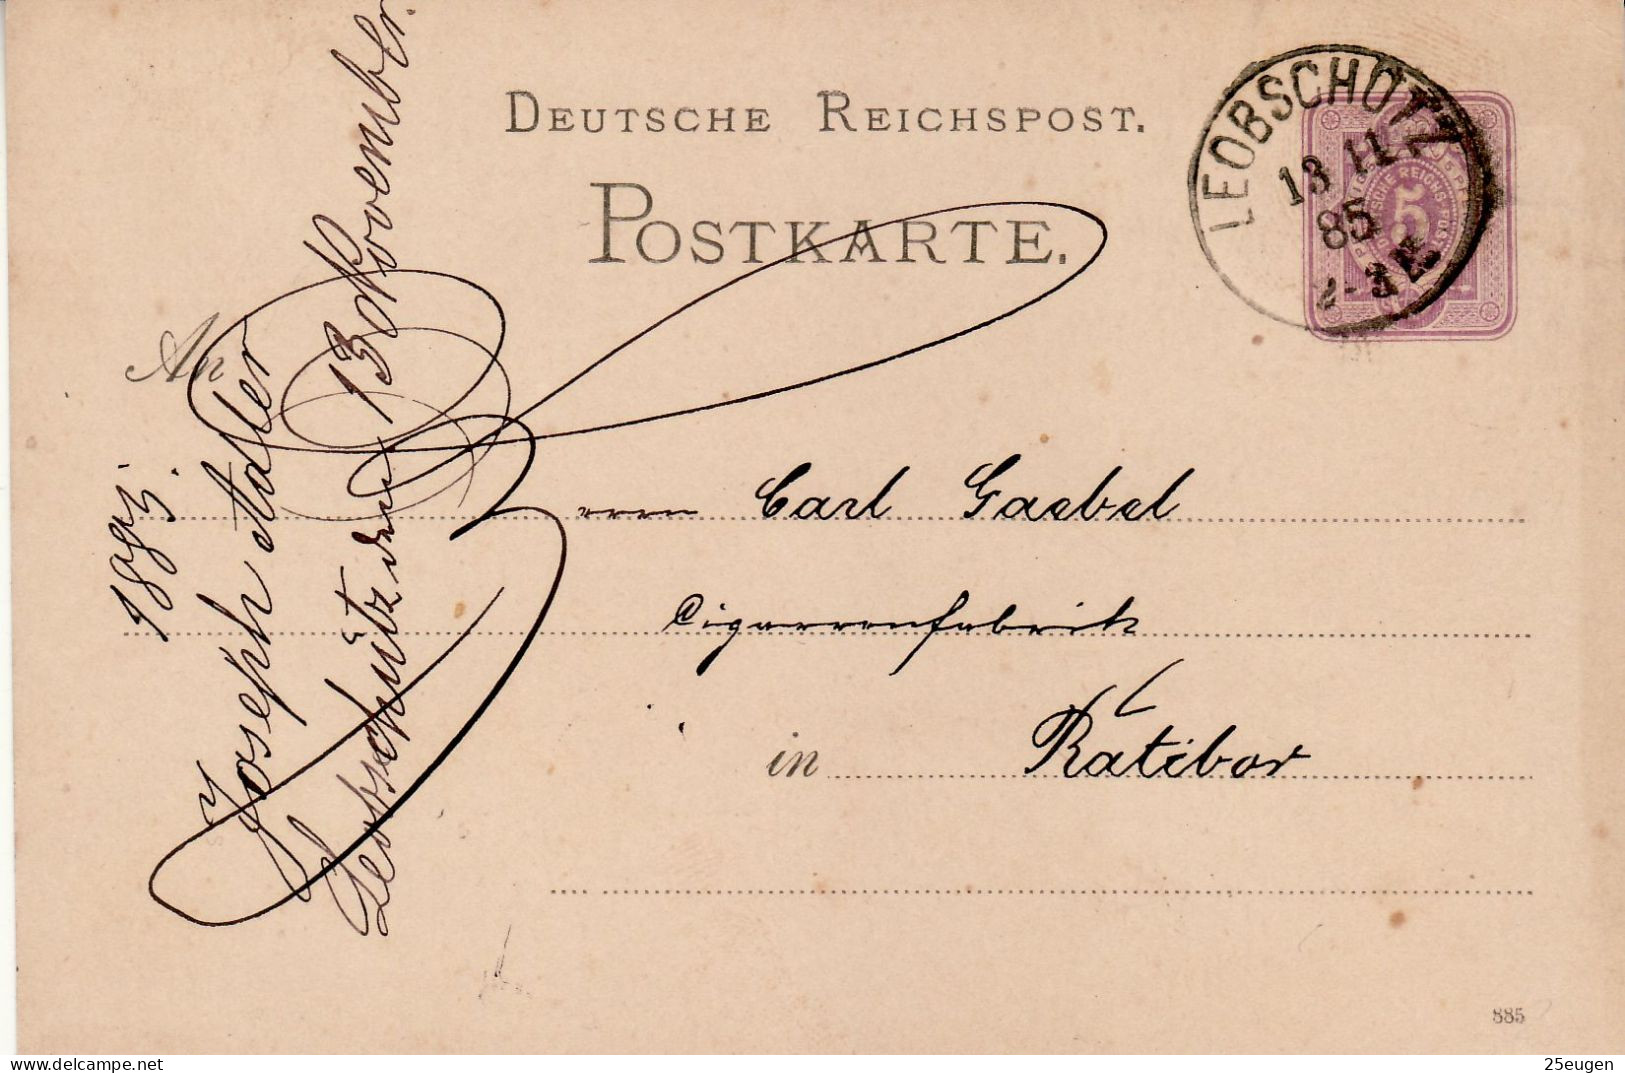 DEUTSCHE REICHSPOST.
POSTKARTE.
LEOBSCHÜTZ
13 11
85
2-3
DEUTSCHE REICHS-POST
5
An
Herrn Carl Gaebel
Cigarrenfabrik
in Ratibor
Leobschütz den 13 November
Joseph Adler
1885.
885
www.delcampe.net
25eugen